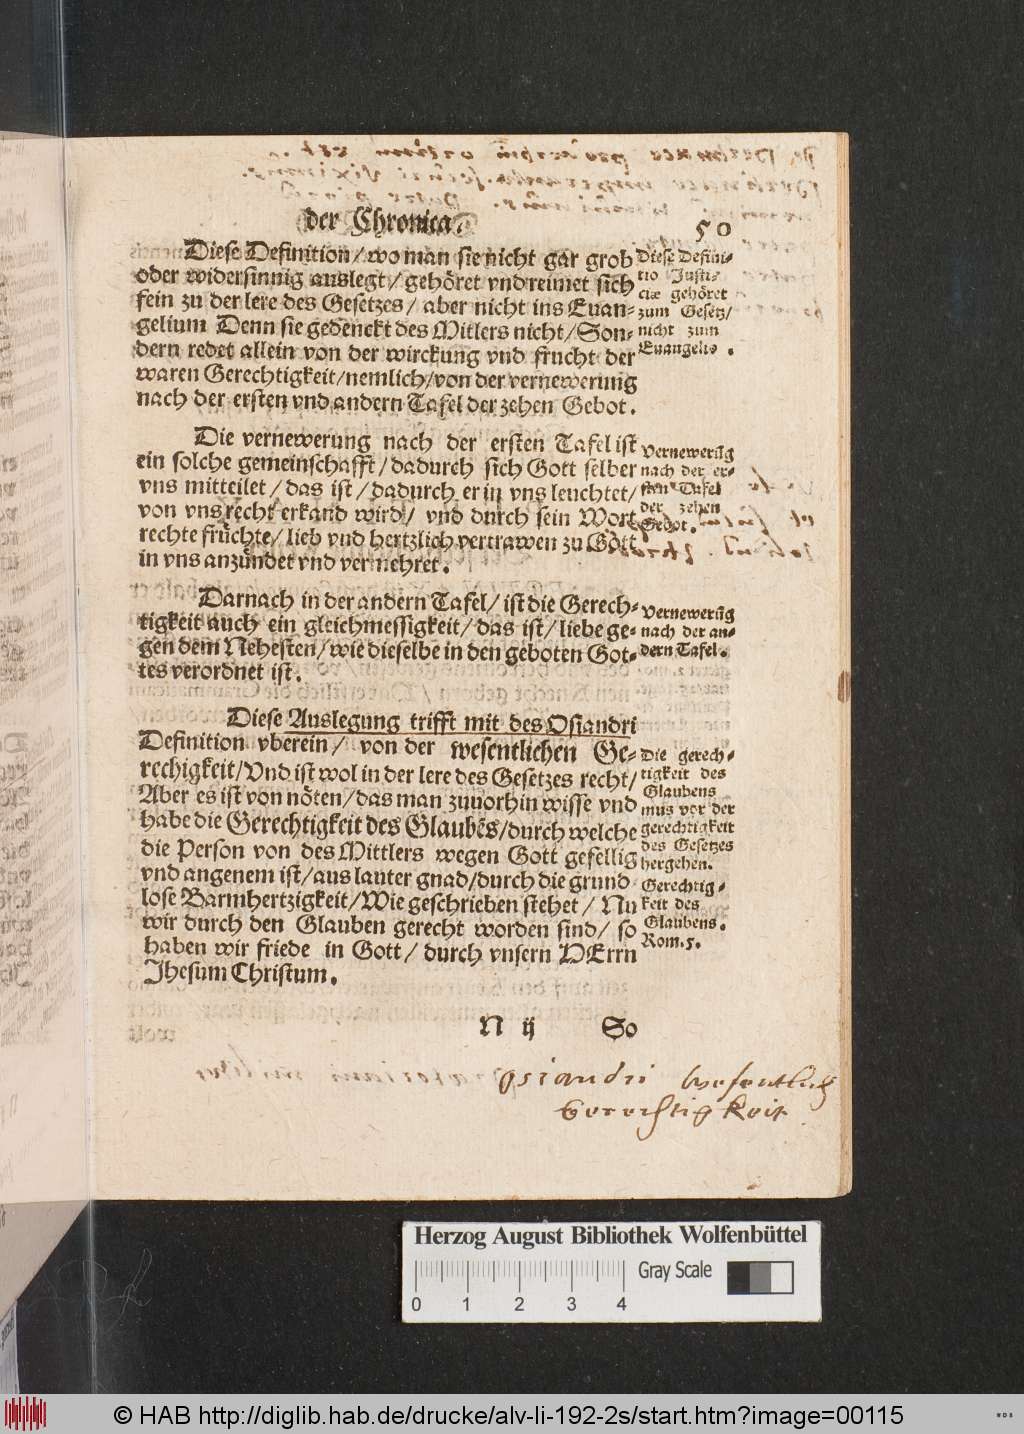 der Chronica.
50
Diese Definition/ wo man sie nicht gar grob
oder widersinnig auslegt/ gehöret vnd reimet sich
fein zu der lere des Gesetzes/ aber nicht ins Euan-
gelium Denn sie gedenckt des Mitlers nicht/ Son-
dern redet allein von der wirckung vnd frucht der
waren Gerechtigkeit/ nemlich/ von der vernewerung
nach der ersten vnd andern Tafel der zehen Gebot.
Diese Defini-
tio Justi-
ciæ gehöret
zum Gesetz/
nicht zum
Euangelio.
Die vernewerung nach der ersten Tafel ist
ein solche gemeinschafft/ dadurch sich Gott selber
vns mitteilet/ das ist/ dadurch er in vns leuchtet/
von vns recht erkand wird/ vnd durch sein Wort
rechte früchte/ lieb vnd hertzlich vertrawen zu Gott
in vns anzündet vnd vermehret.
Vernewerūg
nach der er-
sten Tafel
der zehen
Gebot.
Darnach in der andern Tafel/ ist die Gerech-
tigkeit auch ein gleichmessigkeit/ das ist/ liebe ge-
gen dem Nehesten/ wie dieselbe in den geboten Got-
tes verordnet ist.
Vernewerūg
nach der an-
dern Tafel.
Diese Auslegung trifft mit des Osiandri
Definition vberein/ von der wesentlichen Ge-
rechigkeit/ Vnd ist wol in der lere des Gesetzes recht/
Aber es ist von nöten/ das man zuuorhin wisse vnd
habe die Gerechtigkeit des Glaubēs/ durch welche
die Person von des Mittlers wegen Gott gefellig
vnd angenem ist/ aus lauter gnad/ durch die grund
lose Barmhertzigkeit/ Wie geschrieben stehet/ Nu
wir durch den Glauben gerecht worden sind/ so
haben wir friede in Gott/ durch vnsern HErrn
Jhesum Christum.
Die gerech-
tigkeit des
Glaubens
mus vor der
gerechtigkeit
des Gesetzes
hergehen.
Gerechtig-
keit des
Glaubens.
Rom. 5.
N ij
So
Osiandri wesentlich
Gerechtigkeit
Herzog August Bibliothek Wolfenbüttel
Gray Scale
0 1 2 3 4
© HAB http://diglib.hab.de/drucke/alv-li-192-2s/start.htm?image=00115